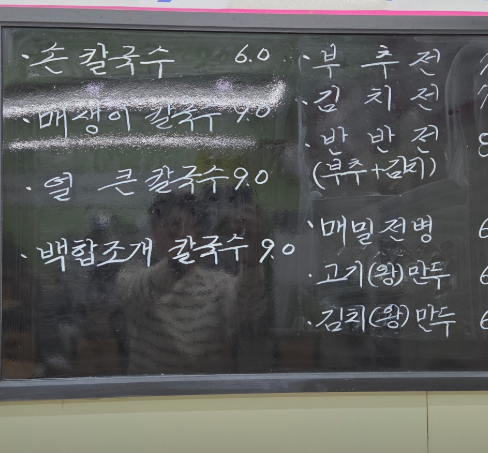 · 손 칼국수 6.0
· 매생이 칼국수 9.0
· 얼 큰 칼국수 9.0
· 백합조개 칼국수 9.0
· 부 추 전
· 김 치 전
· 반 반 전
(부추+김치)
· 매밀전병 6
· 고기(왕)만두 6
· 김치(왕)만두 6